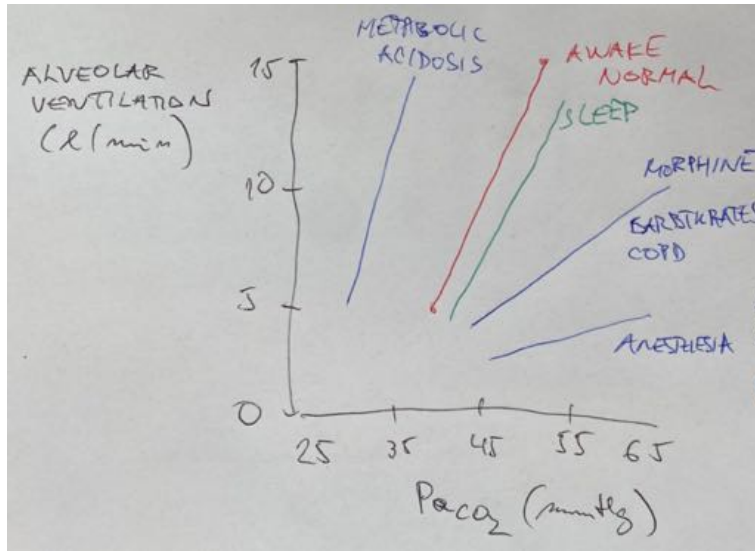 ALVEOLAR
VENTILATION
(l/min)
METABOLIC
ACIDOSIS
AWAKE
NORMAL
SLEEP
MORPHINE
BARBTURATES
COPD
ANESTHESIA
15
10
5
0
25 35 45 55 65
PaCO2 (mmHg)